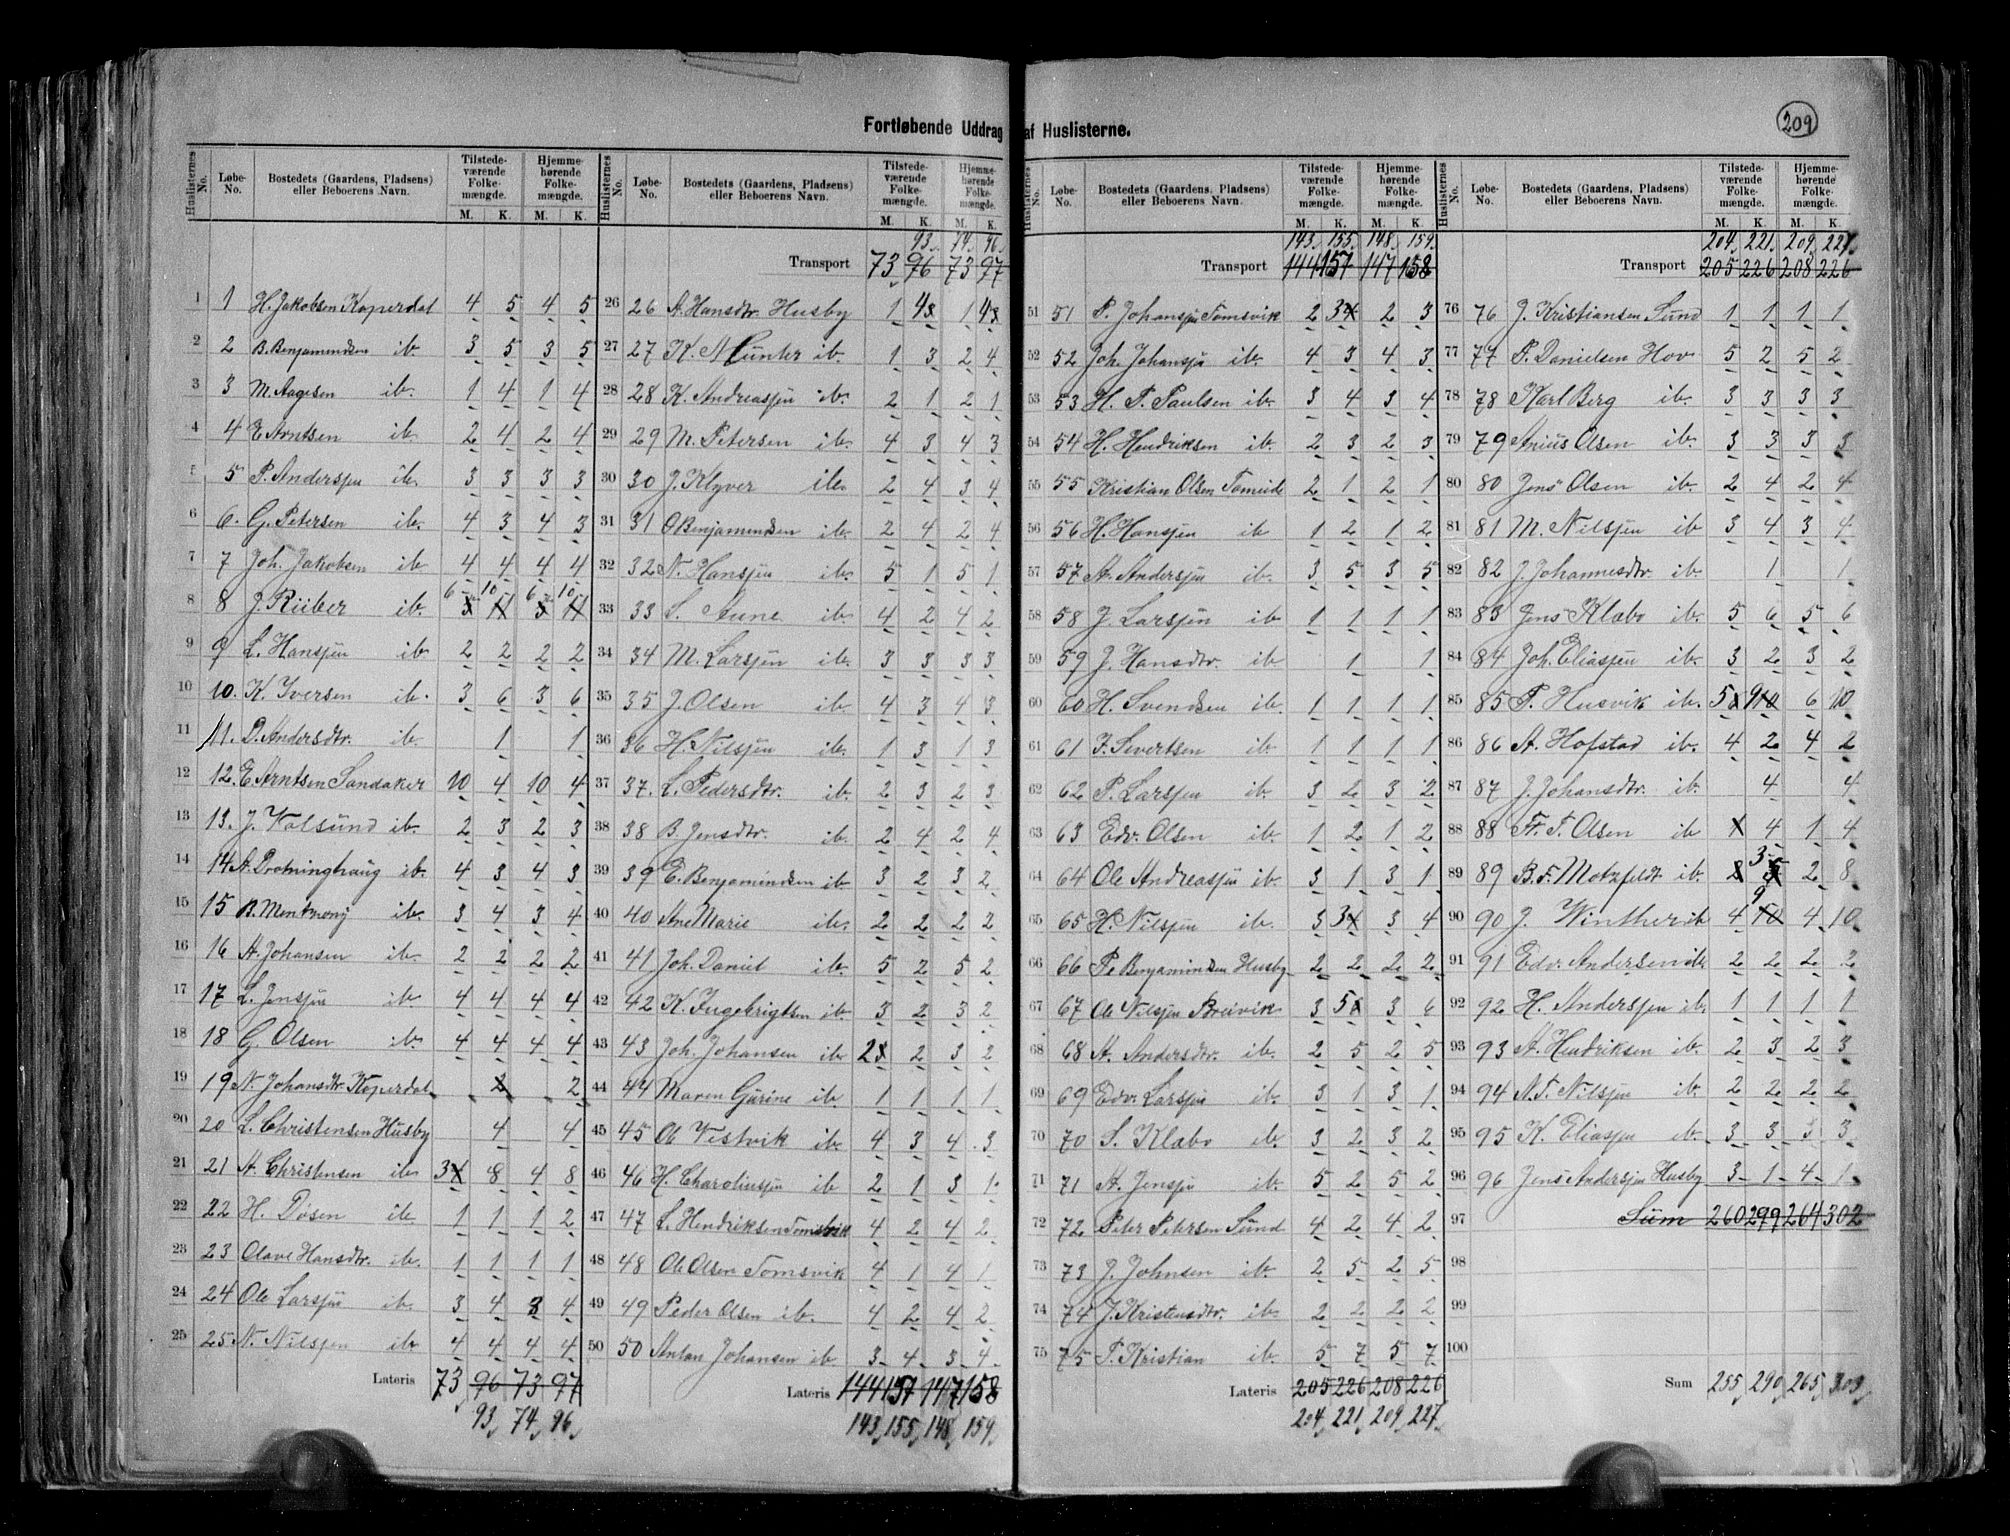 209
Fortløbende Uddrag af Huslisterne.
Huslisternes No. Løbe-No. Bostedets (Gaardens, Pladsens) eller Beboerens Navn. Tilstedeværende Folkemængde. M. K. Hjemmehørende Folkemængde. M. K.
1 1 H. Jakobsen Koperdal 4 5 4 5
2 2 B. Benjamindsen ib. 3 5 3 5
3 3 M. Aagesen ib. 1 4 1 4
4 4 E Arntsen ib. 2 4 2 4
5 5 P. Andersjen ib. 3 3 3 3
6 6. G. Petersen ib. 4 3 4 3
7 7 Joh. Jakobsen ib 4 4 4 4
8 8 J. Riiber ib. 6 10 6 10
9 9 L. Hansjen ib. 2 2 2 2
10 10. K. Iversen ib. 3 6 3 6
11 11. D. Andersdtr. ib. 1 1
12 12. E. Arntsen Sandaker 10 4 10 4
13 13. J. Valsund ib. 2 3 2 3
14 14 A. Dronninghaug ib. 4 3 4 3
15 15 B. Mentzony ib. 3 4 3 4
16 16 A. Johansen ib. 2 2 2 2
17 17 L. Jensjen ib. 4 4 4 4
18 18 G. Olsen ib. 4 4 4 4
19 19 N. Johansdtr Koperdal 2 2
20 20 L. Christensen Husby 4 4
21 21 A. Christensen ib 3 8 4 8
22 22 H. Døsen ib 1 1 1 2
23 23 Olave Hansdtr. ib. 1 1 1 1
24 24 Ole Larsjen ib. 3 4 3 4
25 25 N. Nilsjen ib 4 4 4 4
Lateris 73 96 73 97
93 74 96
Huslisternes No. Løbe-No. Bostedets (Gaardens, Pladsens) eller Beboerens Navn. Tilstedeværende Folkemængde. M. K. Hjemmehørende Folkemængde. M. K.
93 74 96
Transport 73 96 73 97
26 26 A. Hansdtr. Husby 1 4 1 4
27 27 K. Munter ib. 1 3 2 4
28 28 K. Andreasjen ib. 2 1 2 1
29 29 M. Petersen ib. 4 3 4 3
30 30 J. Klyver ib. 2 4 3 4
31 31 O Benjamindsen ib. 2 4 2 4
32 32 N. Hansjen ib. 5 1 5 1
33 33 S. Aune ib. 4 2 4 2
34 34 M. Larsjen ib. 3 3 3 3
35 35 J. Olsen ib. 4 3 4 3
36 36 H. Nilsjen ib. 1 3 1 3
37 37. L. Pedersdtr. ib. 2 3 2 3
38 38 B. Jensdtr. ib. 2 4 2 4
39 39 E. Benjamindsen ib 3 2 3 2
40 40 Ane Marie ib. 2 2 2 2
41 41 Joh. Daniel ib. 5 2 5 2
42 42 K. Ingebrigtsen ib. 3 2 3 2
43 43 Joh. Johansen ib 2 2 3 2
44 44 Maren Gurine ib 1 1 1 1
45 45 Ole Vestvik ib. 4 3 4 3
46 46 H. Charoliusjen ib 2 1 3 1
47 47 L. Hendriksen Tomsvik 4 2 4 2
48 48 Ole Olsen Tomsvik 4 1 4 1
49 49 Peder Olsen ib. 4 2 4 2
50 50 Antan Johansen ib. 3 4 3 4
Lateris 144 157 147 158
143 155 148 159
Huslisternes No. Løbe-No. Bostedets (Gaardens, Pladsens) eller Beboerens Navn. Tilstedeværende Folkemængde. M. K. Hjemmehørende Folkemængde. M. K.
143 155 148 159
Transport 144 157 147 158
51 51 P. Johansjen Tomsvik 2 3 2 3
52 52 Joh. Johansjen ib. 4 3 4 3
53 53 H. P. Paulsen ib. 3 4 3 4
54 54 H. Hendriksen ib. 2 3 2 3
55 55 Kristian Olsen Tomeide 2 1 2 1
56 56 H. Hansjen ib 1 2 1 2
57 57 A. Andersjen ib. 3 5 3 5
58 58 J. Larsjen ib 1 1 1 1
59 59 J. Hansdtr. ib 1 1
60 60 H. Svendsen ib. 1 1 1 1
61 61 J. Sivertsen ib. 1 1 1 1
62 62 P. Larsjen ib. 3 2 3 2
63 63 Edv. Olsen ib. 1 2 1 2
64 64 Ole Andreasjen ib. 3 1 3 1
65 65 H. Nilsjen ib. 3 3 3 4
66 66 Pe Benjamindsen Husby 2 2 2 2
67 67 Ole Nilsjen Breivik 3 5 3 6
68 68 A. Andersdtr. ib. 2 5 2 5
69 69 Edv. Larsjen ib. 3 1 3 1
70 70 S. Klabo ib. 3 2 3 2
71 71 A. Jensjen ib. 5 2 5 2
72 72 Peter Petersen Sund 4 2 4 2
73 73 J. Johnsen ib. 2 5 2 5
74 74 J. Kristensdtr. ib. 2 2 2 2
75 75 P. Kristian ib. 5 7 5 7
Lateris 205 226 208 226
204 221 209 227
Huslisternes No. Løbe-No. Bostedets (Gaardens, Pladsens) eller Beboerens Navn. Tilstedeværende Folkemængde. M. K. Hjemmehørende Folkemængde. M. K.
204 221 209 227
Transport 205 226 208 226
76 76 J. Kristiansen Sund 1 1 1 1
77 77 P. Danielsen Hov 5 2 5 2
78 78 Karl Berg ib. 3 3 3 3
79 79 Anius Olsen ib. 3 3 3 3
80 80 Jens Olsen ib. 2 4 2 4
81 81 M. Nilsjen ib. 3 4 3 4
82 82 J. Johannesdtr. ib. 1 1
83 83 Jens Klabo ib. 5 6 5 6
84 84 Joh. Eliasjen ib. 3 2 3 2
85 85 P. Husvik ib. 5 9 6 10
86 86 A. Hofstad ib. 4 2 4 2
87 87 J. Johansdtr. ib. 4 4
88 88 Fr. T. Olsen ib 4 1 4
89 89 B. F. Motzfeldt ib. 3 2 8
90 90 J. Winther ib 4 9 4 10
91 91 Edv. Andersen ib 2 2 2 2
92 92 H. Andersjen ib. 1 1 1 1
93 93 A. Hendriksen ib. 2 3 2 3
94 94 N. T. Nilsjen ib. 2 2 2 2
95 95 K. Eliasjen ib. 3 3 3 3
96 96 Jens Andersjen Husby 3 1 4 1
97 Sum 260 299 264 302
98
99
100
Sum 255 290 265 303